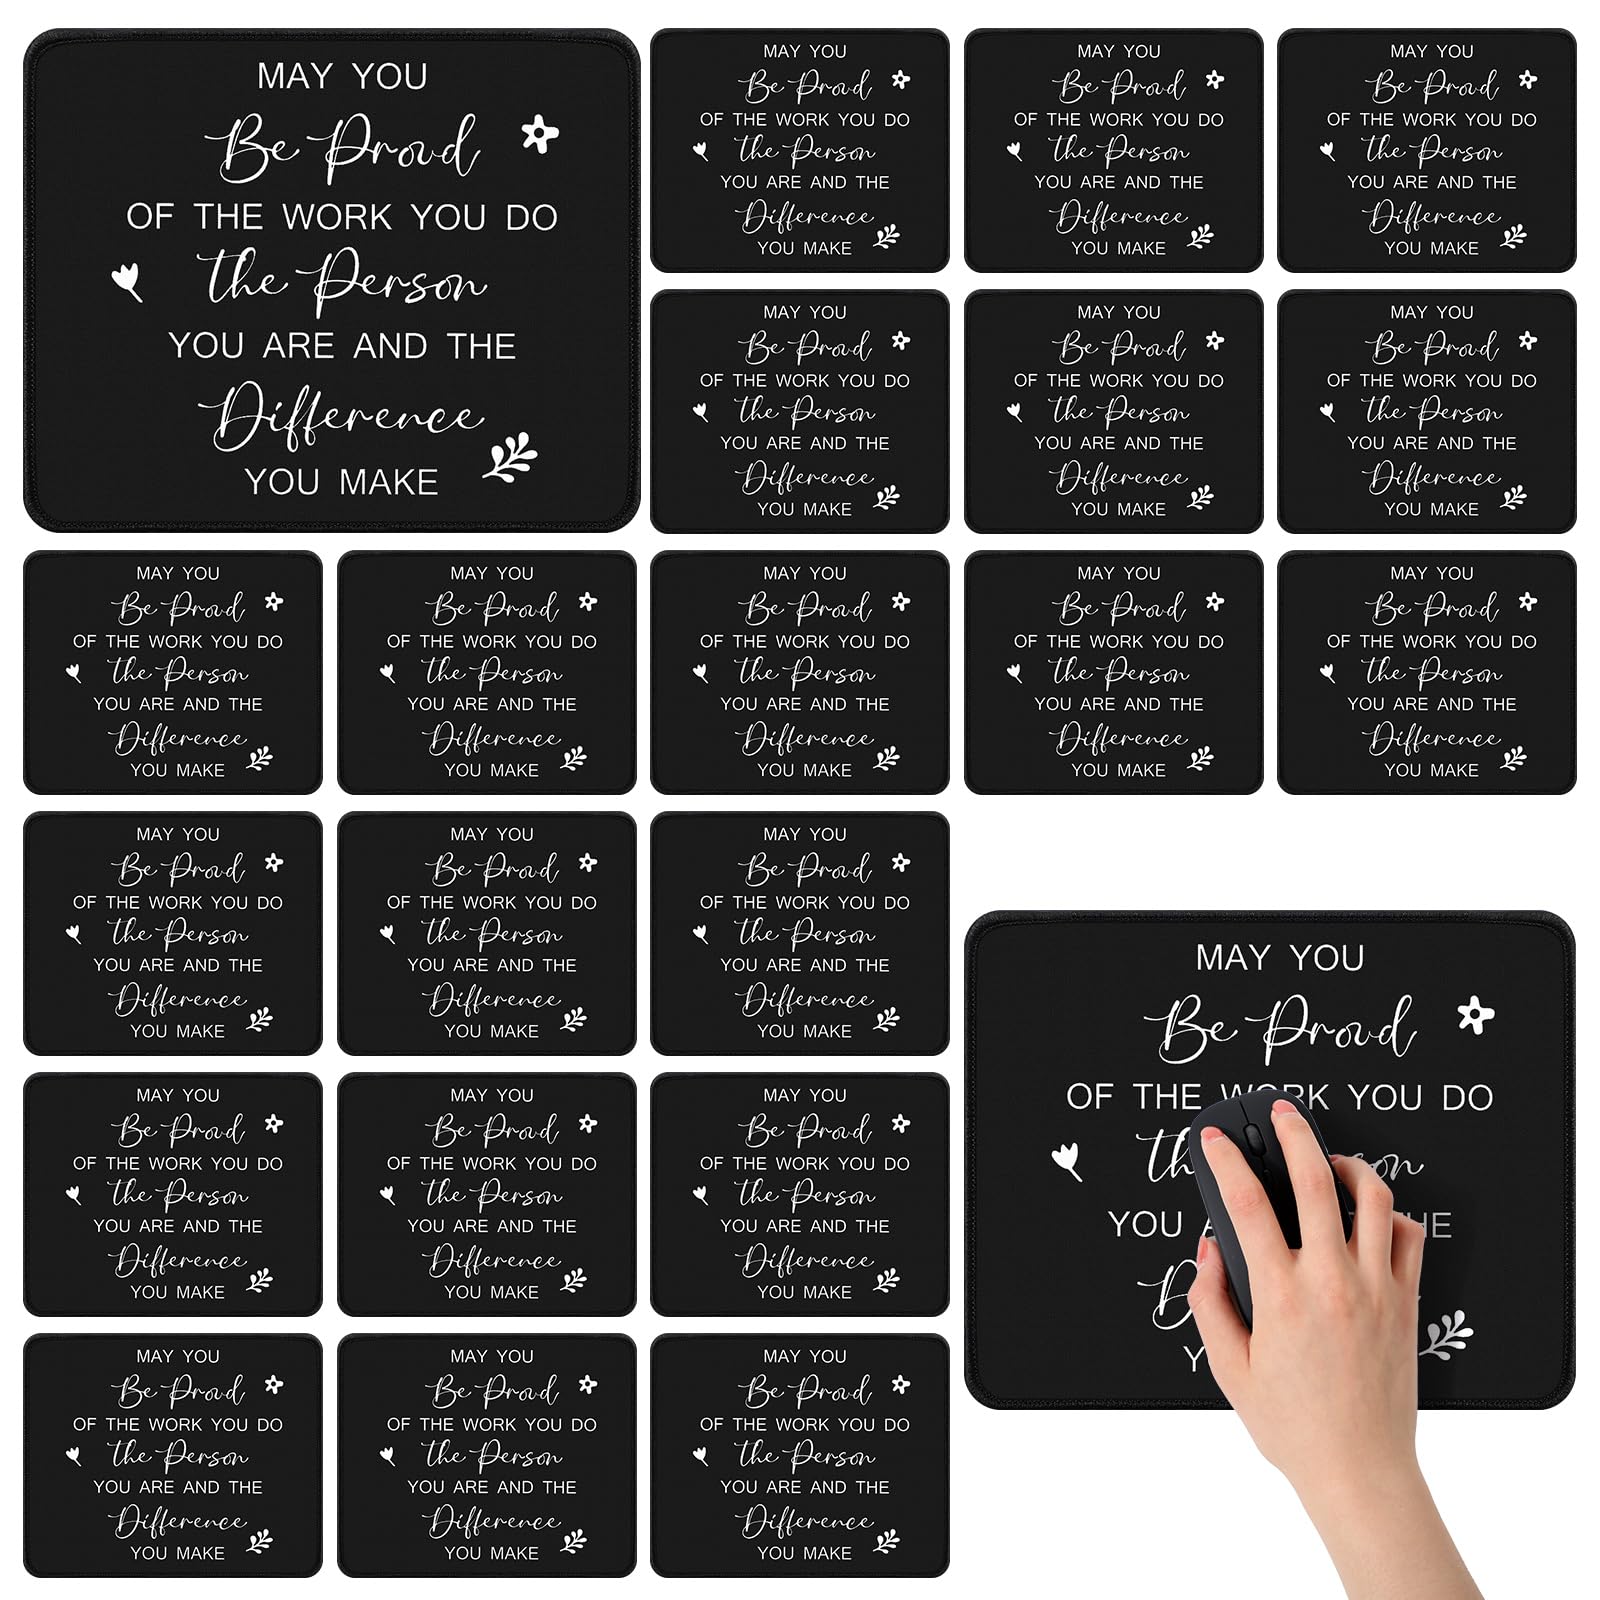 MAY YOU
Be Proud
OF THE WORK YOU DO
the Person
YOU ARE AND THE
Difference
YOU MAKE
MAY YOU
Be Proud
OF THE WORK YOU DO
the Person
YOU ARE AND THE
Difference
YOU MAKE
MAY YOU
Be Proud
OF THE WORK YOU DO
the Person
YOU ARE AND THE
Difference
YOU MAKE
MAY YOU
Be Proud
OF THE WORK YOU DO
the Person
YOU ARE AND THE
Difference
YOU MAKE
MAY YOU
Be Proud
OF THE WORK YOU DO
the Person
YOU ARE AND THE
Difference
YOU MAKE
MAY YOU
Be Proud
OF THE WORK YOU DO
the Person
YOU ARE AND THE
Difference
YOU MAKE
MAY YOU
Be Proud
OF THE WORK YOU DO
the Person
YOU ARE AND THE
Difference
YOU MAKE
MAY YOU
Be Proud
OF THE WORK YOU DO
the Person
YOU ARE AND THE
Difference
YOU MAKE
MAY YOU
Be Proud
OF THE WORK YOU DO
the Person
YOU ARE AND THE
Difference
YOU MAKE
MAY YOU
Be Proud
OF THE WORK YOU DO
the Person
YOU ARE AND THE
Difference
YOU MAKE
MAY YOU
Be Proud
OF THE WORK YOU DO
the Person
YOU ARE AND THE
Difference
YOU MAKE
MAY YOU
Be Proud
OF THE WORK YOU DO
the Person
YOU ARE AND THE
Difference
YOU MAKE
MAY YOU
Be Proud
OF THE WORK YOU DO
the Person
YOU ARE AND THE
Difference
YOU MAKE
MAY YOU
Be Proud
OF THE WORK YOU DO
the Person
YOU ARE AND THE
Difference
YOU MAKE
MAY YOU
Be Proud
OF THE WORK YOU DO
the Person
YOU ARE AND THE
Difference
YOU MAKE
MAY YOU
Be Proud
OF THE WORK YOU DO
the Person
YOU ARE AND THE
Difference
YOU MAKE
MAY YOU
Be Proud
OF THE WORK YOU DO
the Person
YOU ARE AND THE
Difference
YOU MAKE
MAY YOU
Be Proud
OF THE WORK YOU DO
the Person
YOU ARE AND THE
Difference
YOU MAKE
MAY YOU
Be Proud
OF THE WORK YOU DO
the Person
YOU ARE AND THE
Difference
YOU MAKE
MAY YOU
Be Proud
OF THE WORK YOU DO
the Person
YOU ARE AND THE
Difference
YOU MAKE
MAY YOU
Be Proud
OF THE WORK YOU DO
the Person
YOU ARE AND THE
Difference
YOU MAKE
MAY YOU
Be Proud
OF THE WORK YOU DO
YOU